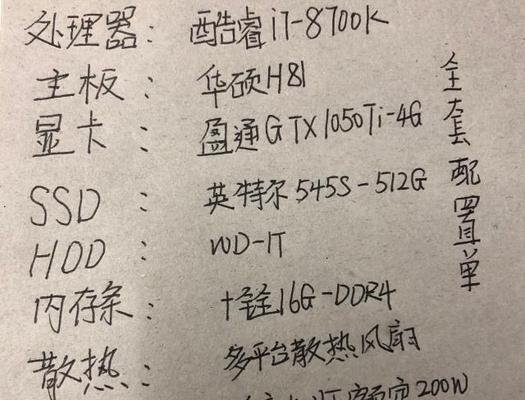 处理器： 酷睿i7-8700K
主板： 华硕H81
显卡： 盈通GTX1050Ti-4G
SSD ： 英特尔545S-512G
HDD ： WD-1T
内存条： 十铨16G-DDR4
散热： 多平台散热风扇
额定200W
全套配置单